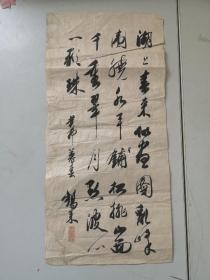 湖上春来似画圖乱峰
围繞水平鋪松排山面
千重翠月點波心
一颗珠